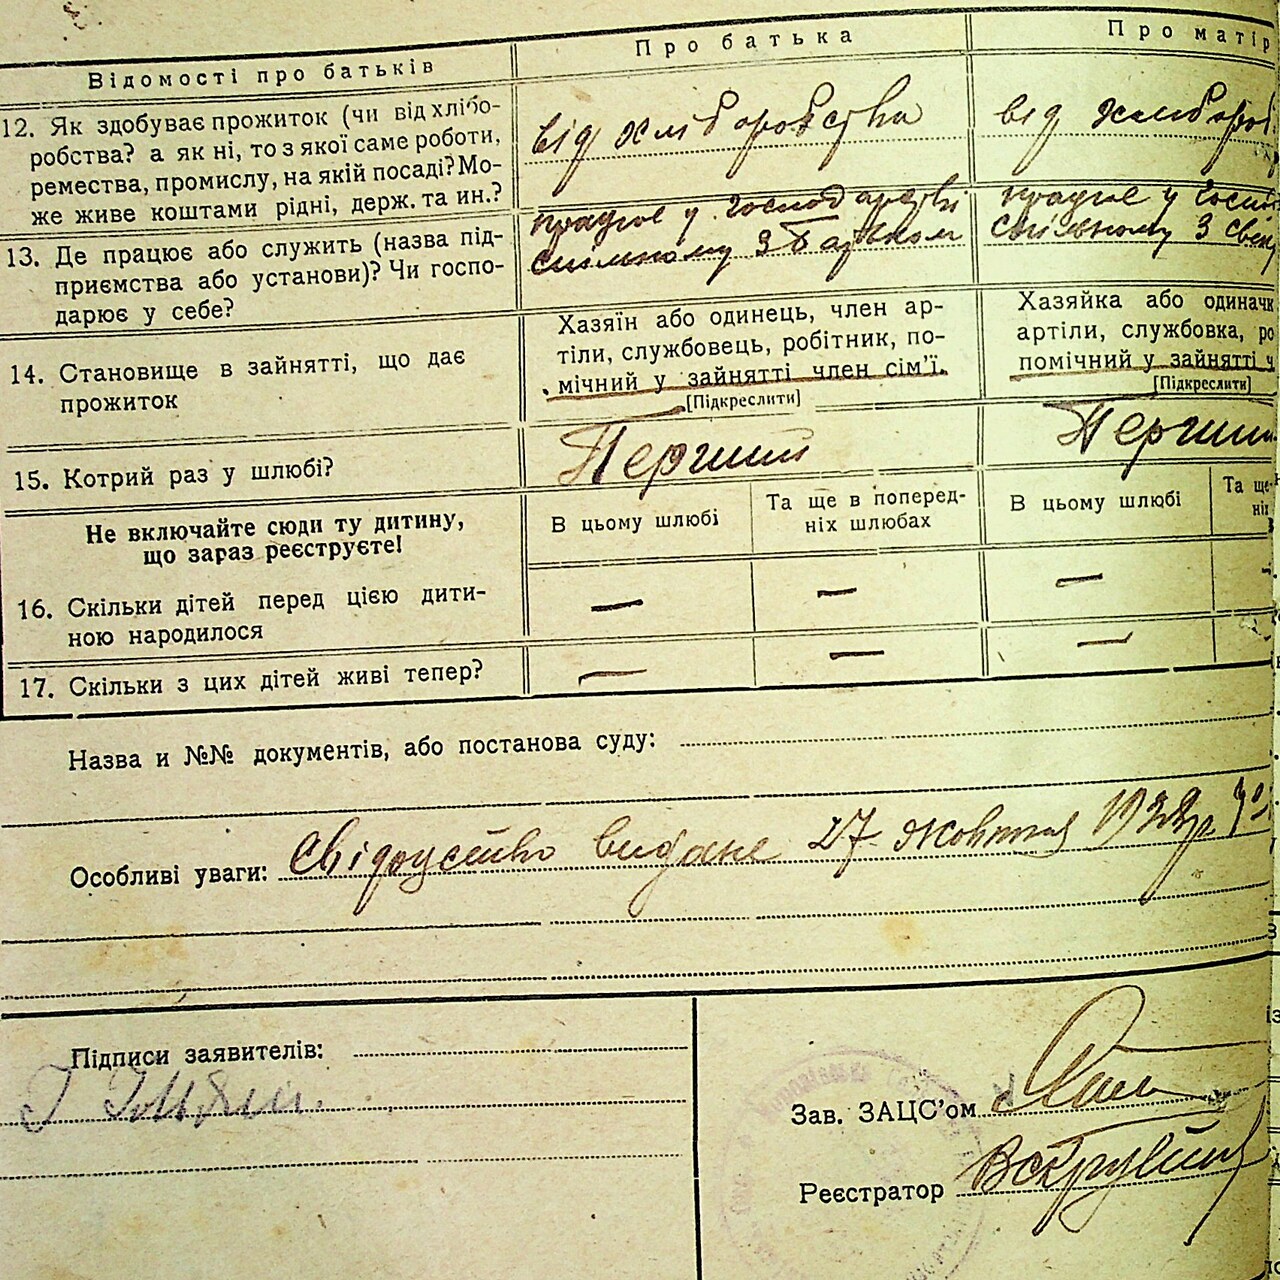 Відомості про батьків
Про батька
Про матір
12. Як здобуває прожиток (чи від хлібо-
робства? а як ні, то з якої саме роботи,
ремества, промислу, на якій посаді? Мо-
же живе коштами рідні, держ. та ин.?
від хліборобства
від хлібороб
13. Де працює або служить (назва під-
приємства або установи)? Чи госпо-
дарює у себе?
працює у господарстві
спільному з батьком
працює у госпо
спільному з свек
14. Становище в зайнятті, що дає
прожиток
Хазяїн або одинець, член ар-
тіли, службовець, робітник, по-
мічний у зайнятті член сім'ї.
[Підкреслити]
Хазяйка або одиначк
артіли, службовка, ро
помічний у зайнятті ч
[Підкреслити]
15. Котрий раз у шлюбі?
Перший
Перший
Не включайте сюди ту дитину,
що зараз реєструєте!
В цьому шлюбі
Та ще в поперед-
ніх шлюбах
В цьому шлюбі
Та ще
ніх
16. Скільки дітей перед цією дити-
ною народилося
—
—
—
17. Скільки з цих дітей живі тепер?
—
—
—
Назва и №№ документів, або постанова суду:
Особливі уваги: Свідоцтво видане 27 жовтня р.
Підписи заявителів:
Зав. ЗАЦС'ом
Реєстратор